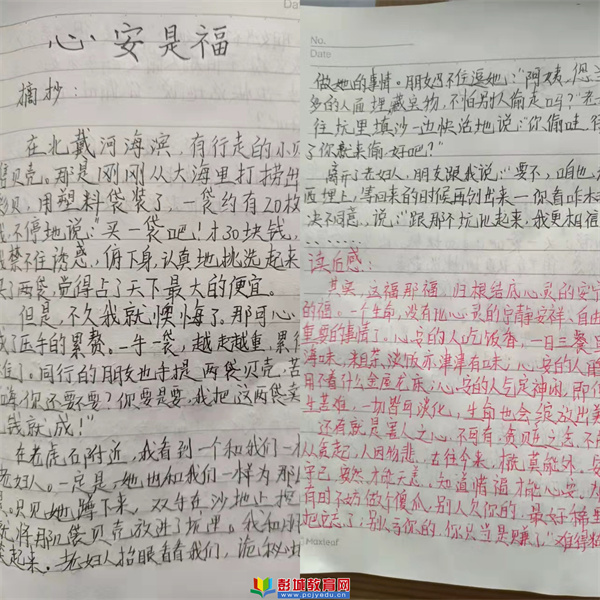 心安是福
摘抄：
在北戴河海滨，有行走的小贝
贝壳。那是刚刚从大海里打捞出
贝，用塑料袋装了，一袋约有20枚
不停地说："买一袋吧！才30块钱，
禁不住诱惑，俯下身，认真地挑选起来
了两袋，觉得占了天下最大的便宜。
但是，不久我就懊悔了。那可心
成了两手的累赘。一手一袋，越走越重，累得
了。同行的朋友也手提两袋贝壳，苦
你还要不要？你要是要，我把这两袋卖
钱就成！"
在老虎石附近，我看到一个和我们一
老妇人。一定是她也和我们一样为那
只见她蹲下来，双手在沙地上挖
将那袋贝壳放进了坑里。我和朋
起来。老妇人抬眼看看我们，诡秘地
No.
Date
做她的事情。朋友忍不住逗她："阿姨，您当
多的人面埋藏宝物，不怕别人偷走吗？"老
往坑里填沙一边快活地说："你偷哇，
了你来偷，好吧？"
离开了老妇人，朋友跟我说："要不，咱也
西埋上，等回来的时候再刨出来—你看咋
决不同意，说："跟那个坑比起来，我更相信
......
读后感：
其实，这福那福，归根结底心灵的安宁
的福。一个生命，没有比心灵的宁静安祥、自由
重要的事情了。心安的人吃饭香，一日三餐
海味，粗茶淡饭亦津津有味；心安的人
用不着什么金屋花床；心安的人气足神闲，即使
生苦难，一切皆可淡化，生命也会绽放出美
还有就是害人之心不可有，贪财之念不
从贪起，人因物悲，古往今来，概莫能外。
守己，安然才能无恙，知道惜福才能心安。
有时不妨做个傻瓜，别人欠你的，最好稀里
把忘了；别人给你的，你只当是赚了。"难得糊
Maxleaf
彭城教育网
www.pcjyedu.cn